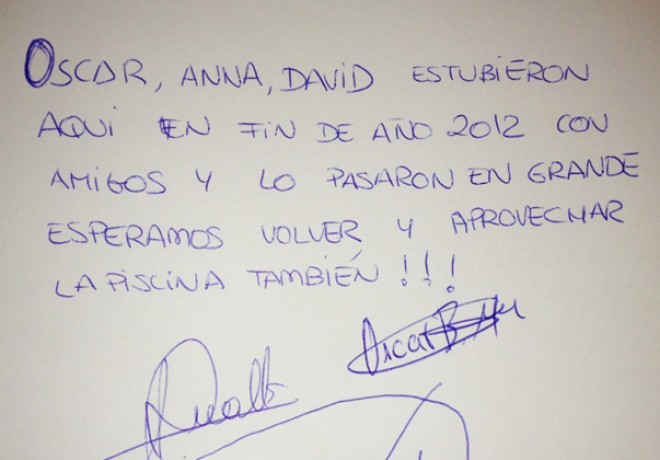 OSCAR, ANNA, DAVID ESTUBIERON
AQUI EN FIN DE AÑO 2012 CON
AMIGOS Y LO PASARON EN GRANDE
ESPERAMOS VOLVER Y APROVECHAR
LA PISCINA TAMBIÉN !!!
Oscar